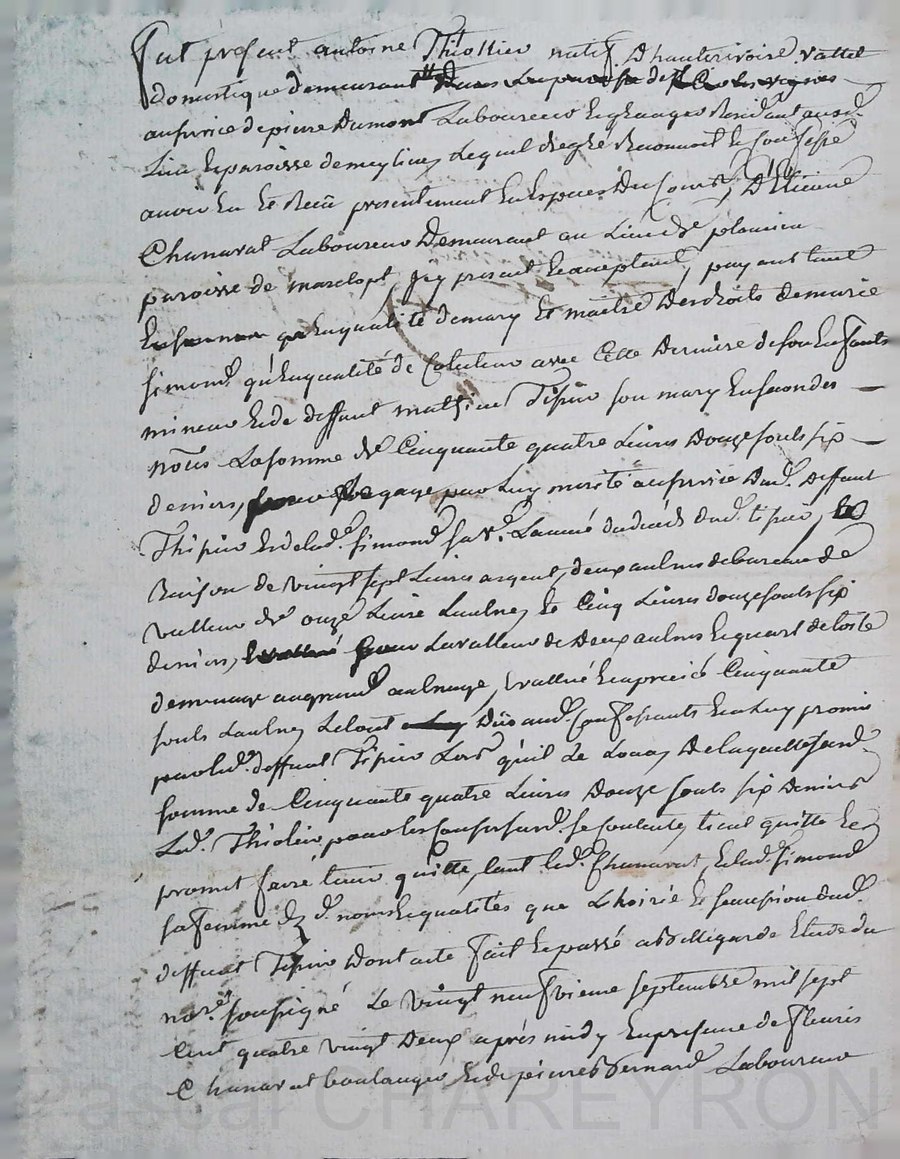 fut présent antoine Thiollier natif d'hauterivoire vallet
domestique demeurant
au service de pierre Dumont Laboureur et granger Residant aud.
Lieu et paroisse de meylieu, Lequel de gré Reconnoit et confesse
avoir eu et Reçu présentement en Especes Du cours, D'Etienne
Chanavat Laboureur Demeurant au Lieu de
paroisse de marclopt, icy present et acceptant, payant tant
qu'en qualité de mary et maître Des droits de marie
Simond qu'en qualité de Cotuteur avec Cette Derniere de son Enfants
mineur et de deffunt mathieu Tipier son mary En secondes
nous La somme de Cinquante quatre Livres Douze sols six
deniers, gage par Luy mérité au service Dud. deffunt
Thipier et de lad. Simond sa v.e L'année du decès dud. tipier,
Raison de vingt sept Livres argent, deux aulnes de bureau de
valleur de onze Livre L'aulne, et Cinq Livres douze sols six
deniers, pour La valleur de Deux aulnes et quart de toile
de menage au grand aulnage, Evallué et apprécié Cinquante
sols L'aulne, Le tout Dû aud. Confessant et a Luy promis
par led. deffunt Tipier Lors qu'il Le Loua, De laquelle susd.
somme de Cinquante quatre Livres Douze sols six Deniers
Led. Thiolier pour les Causes susd. se contente, tient quitte et
promet faire tenir quitte, tant led. Chanavat, et lad. Simond
sa femme es d. noms et qualités que L'hoirie et succession dud.
deffunt Tipier Dont acte fait et passé a Bellegarde Etude du
no.re soussigné Le vingt neufvieme septembre mil sept
Cent quatre vingt Deux après midy En presence de fleuris
Chanavat boulanger et de pierre Bernard Laboureur
Pascal CHAREYRON